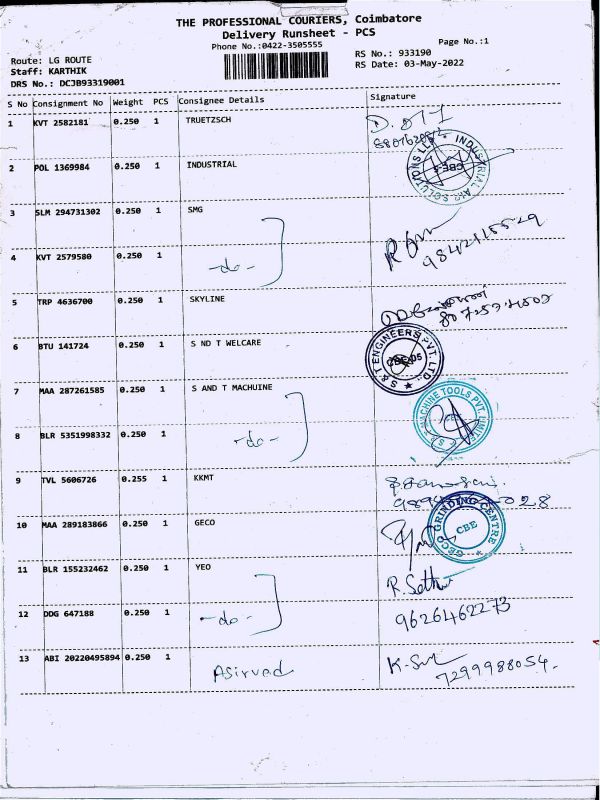 THE PROFESSIONAL COURIERS, Coimbatore
Delivery Runsheet - PCS
Phone No.:0422-3505555
Page No.:1
Route: LG ROUTE
RS No.: 933190
Staff: KARTHIK
RS Date: 03-May-2022
DRS No.: DCJB93319001
S No Consignment No Weight PCS Consignee Details Signature
1 KVT 2582181 0.250 1 TRUETZSCH
2 POL 1369984 0.250 1 INDUSTRIAL
INDUSTRIAL AIR SOLUTIONS
3 SLM 294731302 0.250 1 SMG
4 KVT 2579580 0.250 1 -do-
9842115529
5 TRP 4636700 0.250 1 SKYLINE
6 BTU 141724 0.250 1 S ND T WELCARE
S & T ENGINEERS PVT. LTD.
CBE-05
7 MAA 287261585 0.250 1 S AND T MACHUINE
S & T MACHINE TOOLS PVT. LIMITED
8 BLR 5351998332 0.250 1 -do-
9 TVL 5606726 0.255 1 KKMT
10 MAA 289183866 0.250 1 GECO
GECO GRINDING CENTRE
CBE
11 BLR 155232462 0.250 1 YEO
R. Seth
12 DDG 647188 0.250 1 -do- 9626462273
13 ABI 20220495894 0.250 1 Asirvad
7299988054.